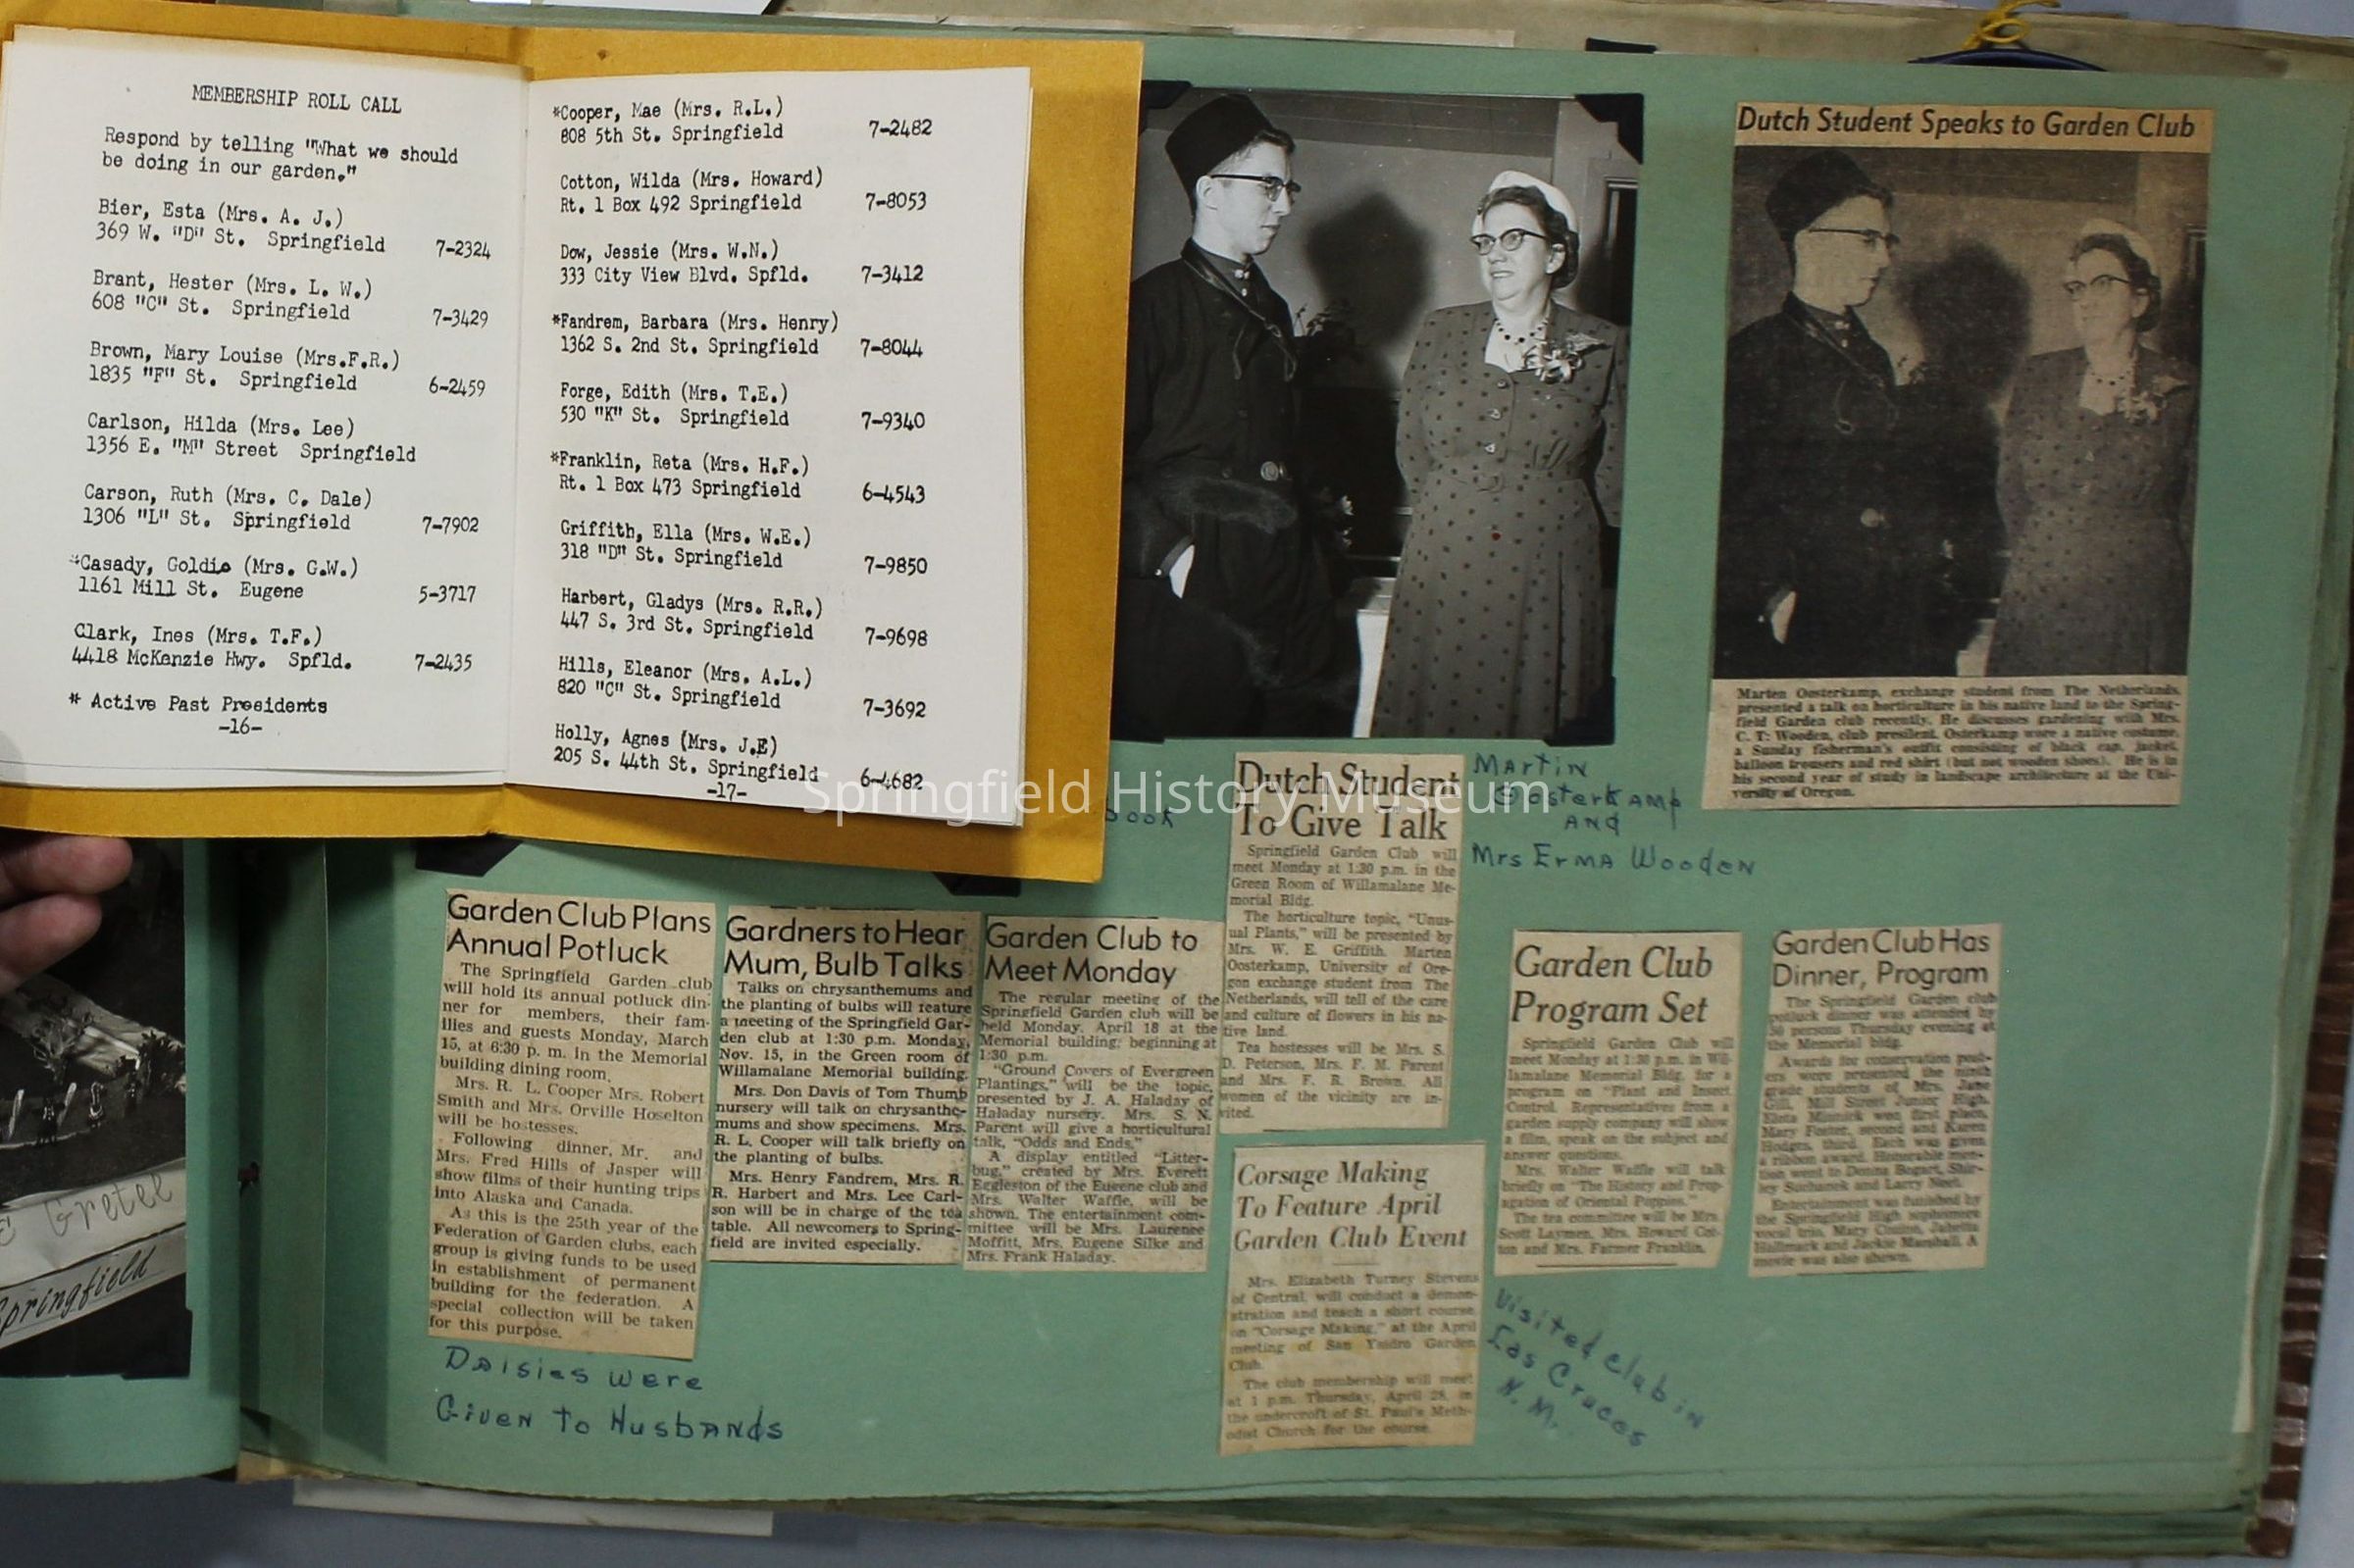 MEMBERSHIP ROLL CALL
Respond by telling "What we should
be doing in our garden."
Bier, Esta (Mrs. A. J.)
369 W. "D" St. Springfield 7-2324
Brant, Hester (Mrs. L. W.)
608 "C" St. Springfield 7-3429
Brown, Mary Louise (Mrs.F.R.)
1835 "F" St. Springfield 6-2459
Carlson, Hilda (Mrs. Lee)
1356 E. "M" Street Springfield
Carson, Ruth (Mrs. C. Dale)
1306 "L" St. Springfield 7-7902
*Casady, Goldie (Mrs. G.W.)
1161 Mill St. Eugene 5-3717
Clark, Ines (Mrs. T.F.)
4418 McKenzie Hwy. Spfld. 7-2435
* Active Past Presidents
-16-
*Cooper, Mae (Mrs. R.L.)
808 5th St. Springfield 7-2482
Cotton, Wilda (Mrs. Howard)
Rt. 1 Box 492 Springfield 7-8053
Dow, Jessie (Mrs. W.N.)
333 City View Blvd. Spfld. 7-3412
*Fandrem, Barbara (Mrs. Henry)
1362 S. 2nd St. Springfield 7-8044
Forge, Edith (Mrs. T.E.)
530 "K" St. Springfield 7-9340
*Franklin, Reta (Mrs. H.F.)
Rt. 1 Box 473 Springfield 6-4543
Griffith, Ella (Mrs. W.E.)
318 "D" St. Springfield 7-9850
Harbert, Gladys (Mrs. R.R.)
447 S. 3rd St. Springfield 7-9698
Hills, Eleanor (Mrs. A.L.)
820 "C" St. Springfield 7-3692
Holly, Agnes (Mrs. J.E)
205 S. 44th St. Springfield 6-4682
-17-
Dutch Student Speaks to Garden Club
Marten Oosterkamp, exchange student from The Netherlands,
presented a talk on horticulture in his native land to the Spring-
field Garden club recently. He discusses gardening with Mrs.
C. T. Wooden, club president. Osterkamp wore a native costume,
a Sunday fisherman's outfit consisting of black cap, jacket,
balloon trousers and red shirt (but not wooden shoes). He is in
his second year of study in landscape architecture at the Uni-
versity of Oregon.
Springfield History Museum
book
Martin
Oosterkamp
and
Mrs Erma Wooden
Dutch Student
To Give Talk
Springfield Garden Club will
meet Monday at 1:30 p.m. in the
Green Room of Willamalane Me-
morial Bldg.
The horticulture topic, "Unus-
ual Plants," will be presented by
Mrs. W. E. Griffith. Marten
Oosterkamp, University of Ore-
gon exchange student from The
Netherlands, will tell of the care
and culture of flowers in his na-
tive land.
Tea hostesses will be Mrs. S.
D. Peterson, Mrs. F. M. Parent
and Mrs. F. R. Brown. All
women of the vicinity are in-
vited.
Garden Club Plans
Annual Potluck
The Springfield Garden club
will hold its annual potluck din-
ner for members, their fam-
ilies and guests Monday, March
15, at 6:30 p. m. in the Memorial
building dining room.
Mrs. R. L. Cooper Mrs. Robert
Smith and Mrs. Orville Hoselton
will be hostesses.
Following dinner, Mr. and
Mrs. Fred Hills of Jasper will
show films of their hunting trips
into Alaska and Canada.
As this is the 25th year of the
Federation of Garden clubs, each
group is giving funds to be used
in establishment of permanent
building for the federation. A
special collection will be taken
for this purpose.
Daisies were
Given to Husbands
Gardners to Hear
Mum, Bulb Talks
Talks on chrysanthemums and
the planting of bulbs will feature
a meeting of the Springfield Gar-
den club at 1:30 p.m. Monday,
Nov. 15, in the Green room of
Willamalane Memorial building.
Mrs. Don Davis of Tom Thumb
nursery will talk on chrysanthe-
mums and show specimens. Mrs.
R. L. Cooper will talk briefly on
the planting of bulbs.
Mrs. Henry Fandrem, Mrs. R.
R. Harbert and Mrs. Lee Carl-
son will be in charge of the tea
table. All newcomers to Spring-
field are invited especially.
Garden Club to
Meet Monday
The regular meeting of the
Springfield Garden club will be
held Monday, April 18 at the
Memorial building; beginning at
1:30 p.m.
"Ground Covers of Evergreen
Plantings," will be the topic,
presented by J. A. Haladay of
Haladay nursery. Mrs. S. N.
Parent will give a horticultural
talk, "Odds and Ends."
A display entitled "Litter-
bug," created by Mrs. Everett
Eggleston of the Eugene club and
Mrs. Walter Waffle, will be
shown. The entertainment com-
mittee will be Mrs. Laurence
Moffitt, Mrs. Eugene Silke and
Mrs. Frank Haladay.
Corsage Making
To Feature April
Garden Club Event
Mrs. Elizabeth Turney Stevens
of Central, will conduct a demon-
stration and teach a short course
on "Corsage Making," at the April
meeting of San Ysidro Garden
Club.
The club membership will meet
at 1 p.m. Thursday, April 28, in
the undercroft of St. Paul's Meth-
odist Church for the course.
Visited club in
Las Cruces
N. M.
Garden Club
Program Set
Springfield Garden Club will
meet Monday at 1:30 p.m. in Wil-
lamalane Memorial Bldg. for a
program on "Plant and Insect
Control. Representatives from a
garden supply company will show
a film, speak on the subject and
answer questions.
Mrs. Walter Waffle will talk
briefly on "The History and Prop-
agation of Oriental Poppies."
The tea committee will be Mrs.
Scott Laymen, Mrs. Howard Cot-
ton and Mrs. Farmer Franklin.
Garden Club Has
Dinner, Program
The Springfield Garden club
potluck dinner was attended by
50 persons Thursday evening at
the Memorial bldg.
Awards for conservation post-
ers were presented the ninth
grade students of Mrs. Jane
Gill, Mill Street Junior High.
won first place,
Mary Foster, second and Karen
Hodges, third. Each was given
a ribbon award. Honorable men-
tion went to Donna Bogart, Shir-
ley Suchanek and Larry Neet.
Entertainment was funished by
the Springfield High sophomore
vocal trio, Mary
and Jackie Marshall. A
movie was also shown.
Gretel
Springfield